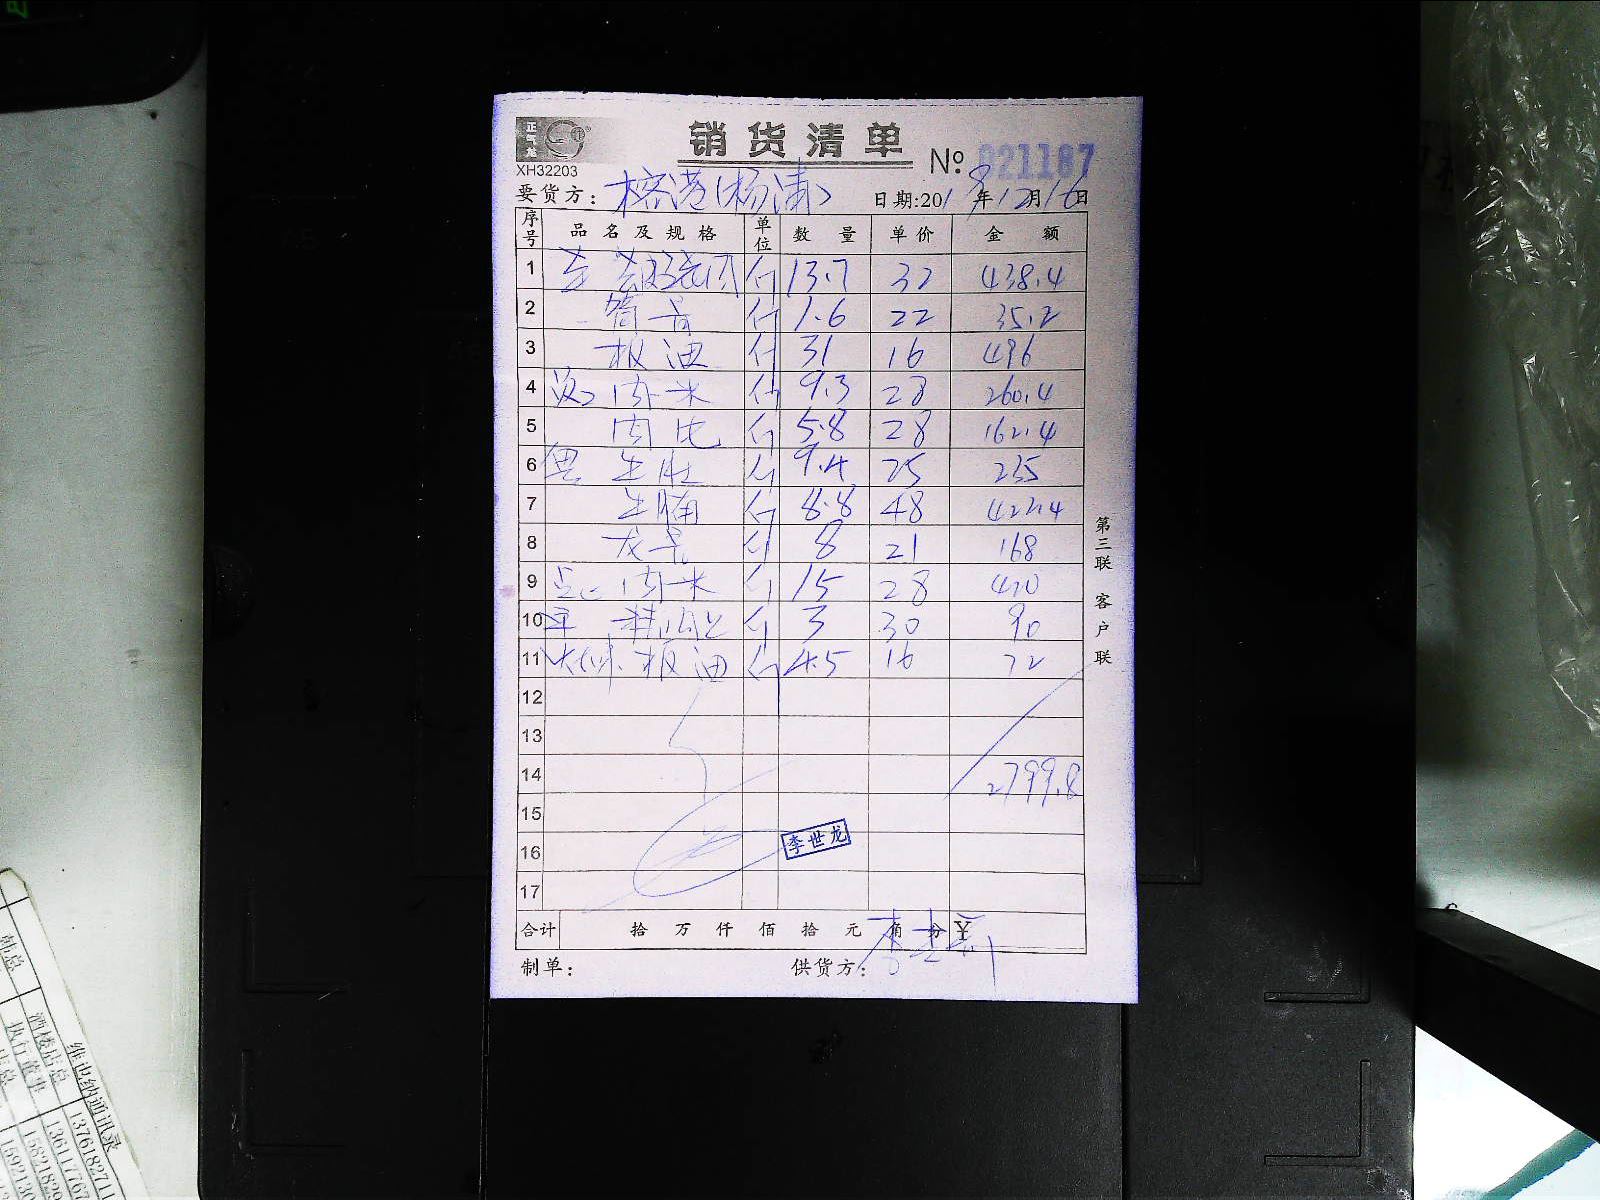 正
XH32203
销货清单
№ 021187
要货方: 榕港(杨浦) 日期:2019年12月16日
序号 品名及规格 单位 数量 单价 金额
1 斤 13.7 32 438.4
2 筒骨 斤 1.6 22 35.2
3 板油 斤 31 16 496
4 肉米 斤 9.3 28 260.4
5 肉 斤 5.8 28 162.4
6 生肚 斤 9.4 25 235
7 生腩 斤 8.8 48 422.4
8 龙骨 斤 8 21 168
9 点心 肉米 斤 15 28 420
10 斤 3 30 90
11 板油 斤 4.5 16 72
12
13
14 2799.8
15
16 李世龙
17
合计 拾 万 仟 佰 拾 元 角 分 ¥
制单: 供货方: 李世龙
第三联 客户联
韩总
酒楼店总
执行董事
维也纳通讯录